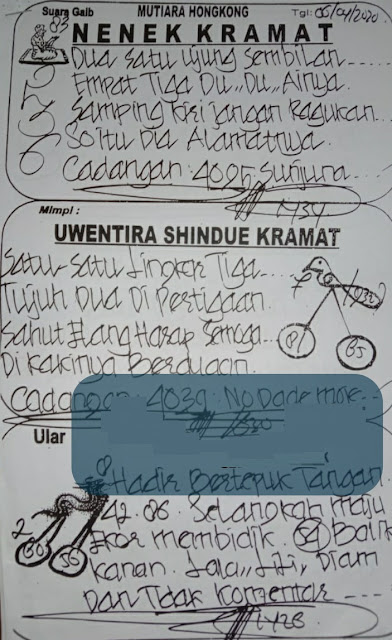 Suara Gaib MUTIARA HONGKONG Tgl: 05/04/2020
03 NENEK KRAMAT
Dua Satu Ujung Sembilan
Empat Tiga Du,, Du,, Airnya.
Samping Kiri Jangan Ragukan
So Itu Dia Alamatnya.
Cadangan: 4025. Sunjuna
2
7
3
6
Mimpi :
UWENTIRA SHINDUE KRAMAT
Satu-Satu Lingkar Tiga
Tujuh Dua Di Pertigaan.
Sahut Elang Harap Semoga
Di Kakinya Berduaan.
7
81 85
Cadangan 4039. No Dade more.
Ular
8
Hadir Bertepuk Tangan
42.86. Selangkah Maju
Ekor membidik. 54 Balik
Kanan. Lala,, Lili, Diam
Dan Tidak Komentar
2
30 35